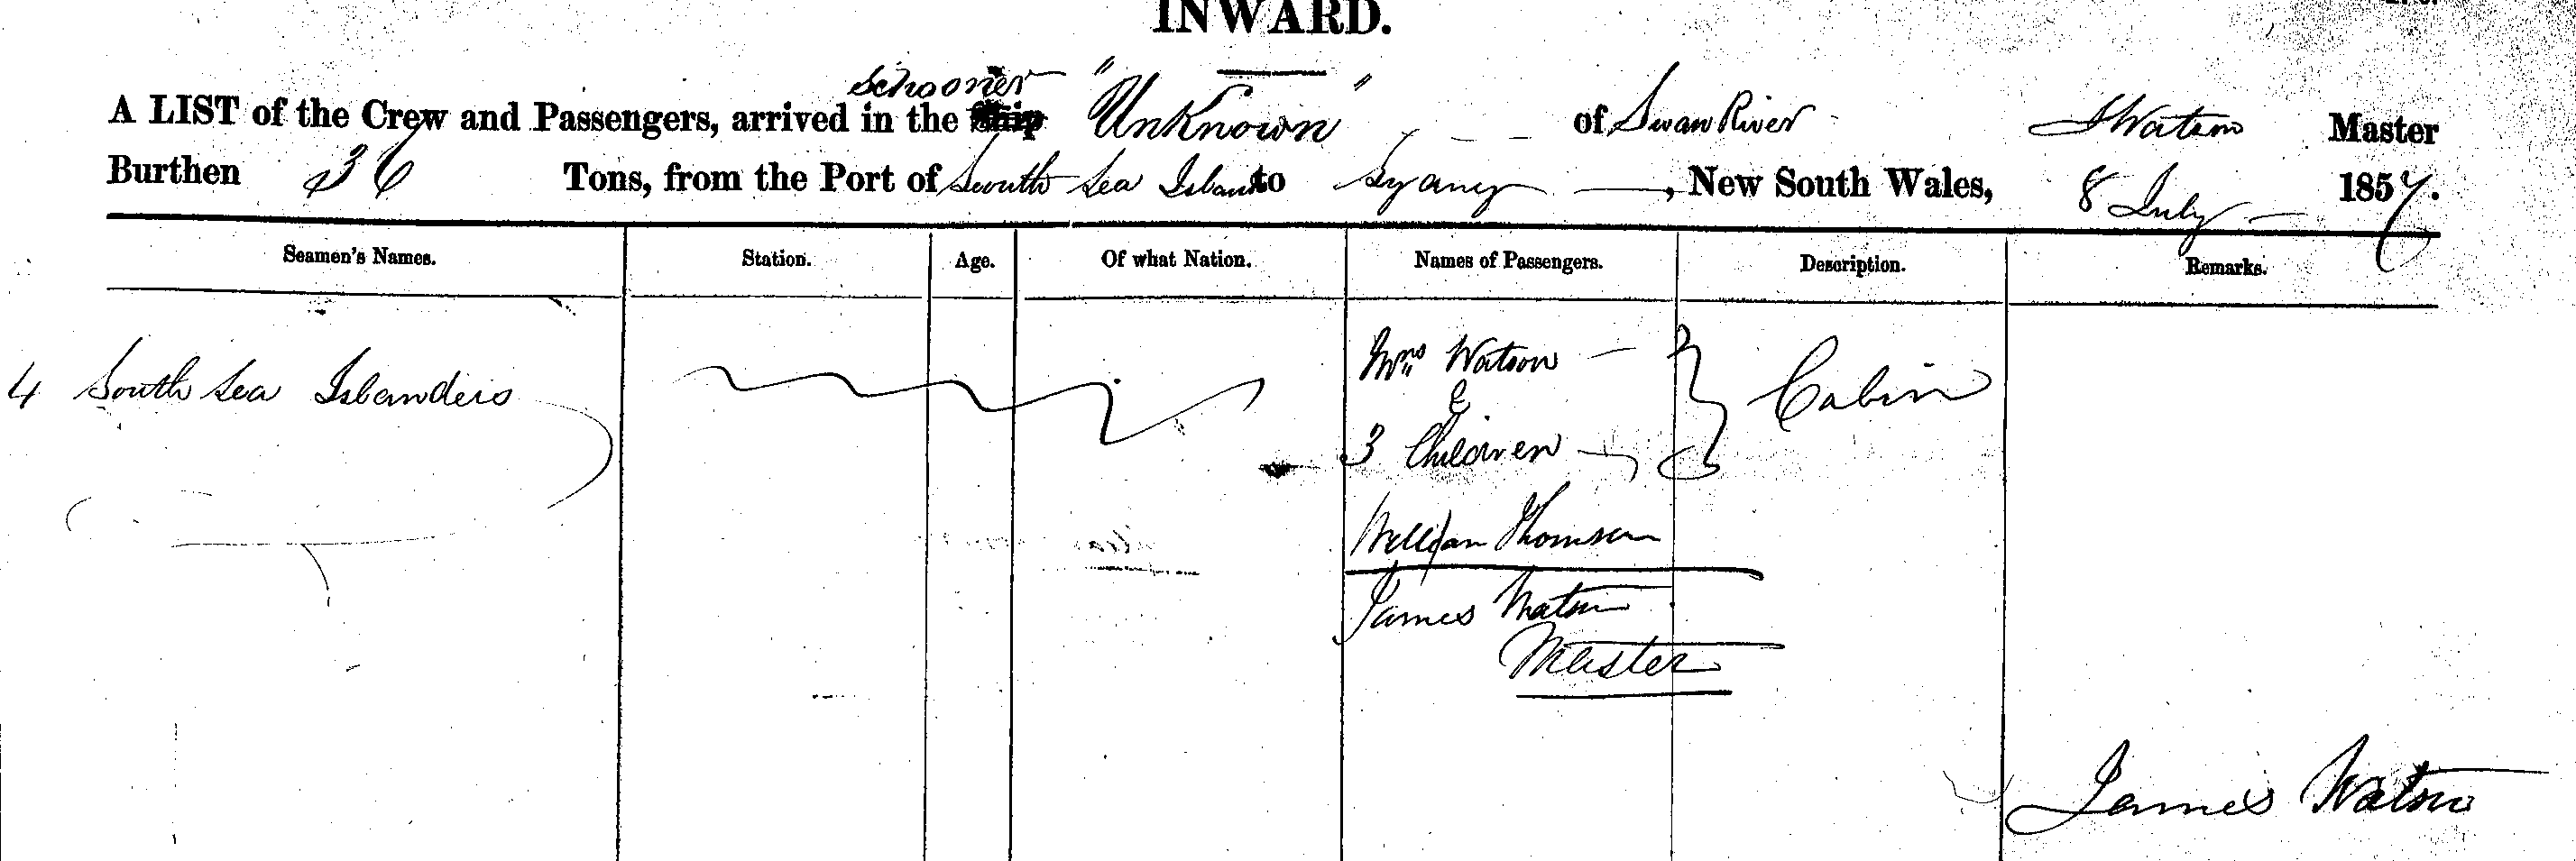 INWARD.
schooner
A LIST of the Crew and Passengers, arrived in the ship "Unknown" of Swan River J Watson Master
Burthen 36 Tons, from the Port of South Sea Islands to Sydney, New South Wales, 8 July 1857.
Seamen's Names. Station. Age. Of what Nation. Names of Passengers. Description. Remarks.
Mrs Watson
4 South Sea Islanders & Cabin
3 Children
William Thomson
James Watson
Master
James Watson